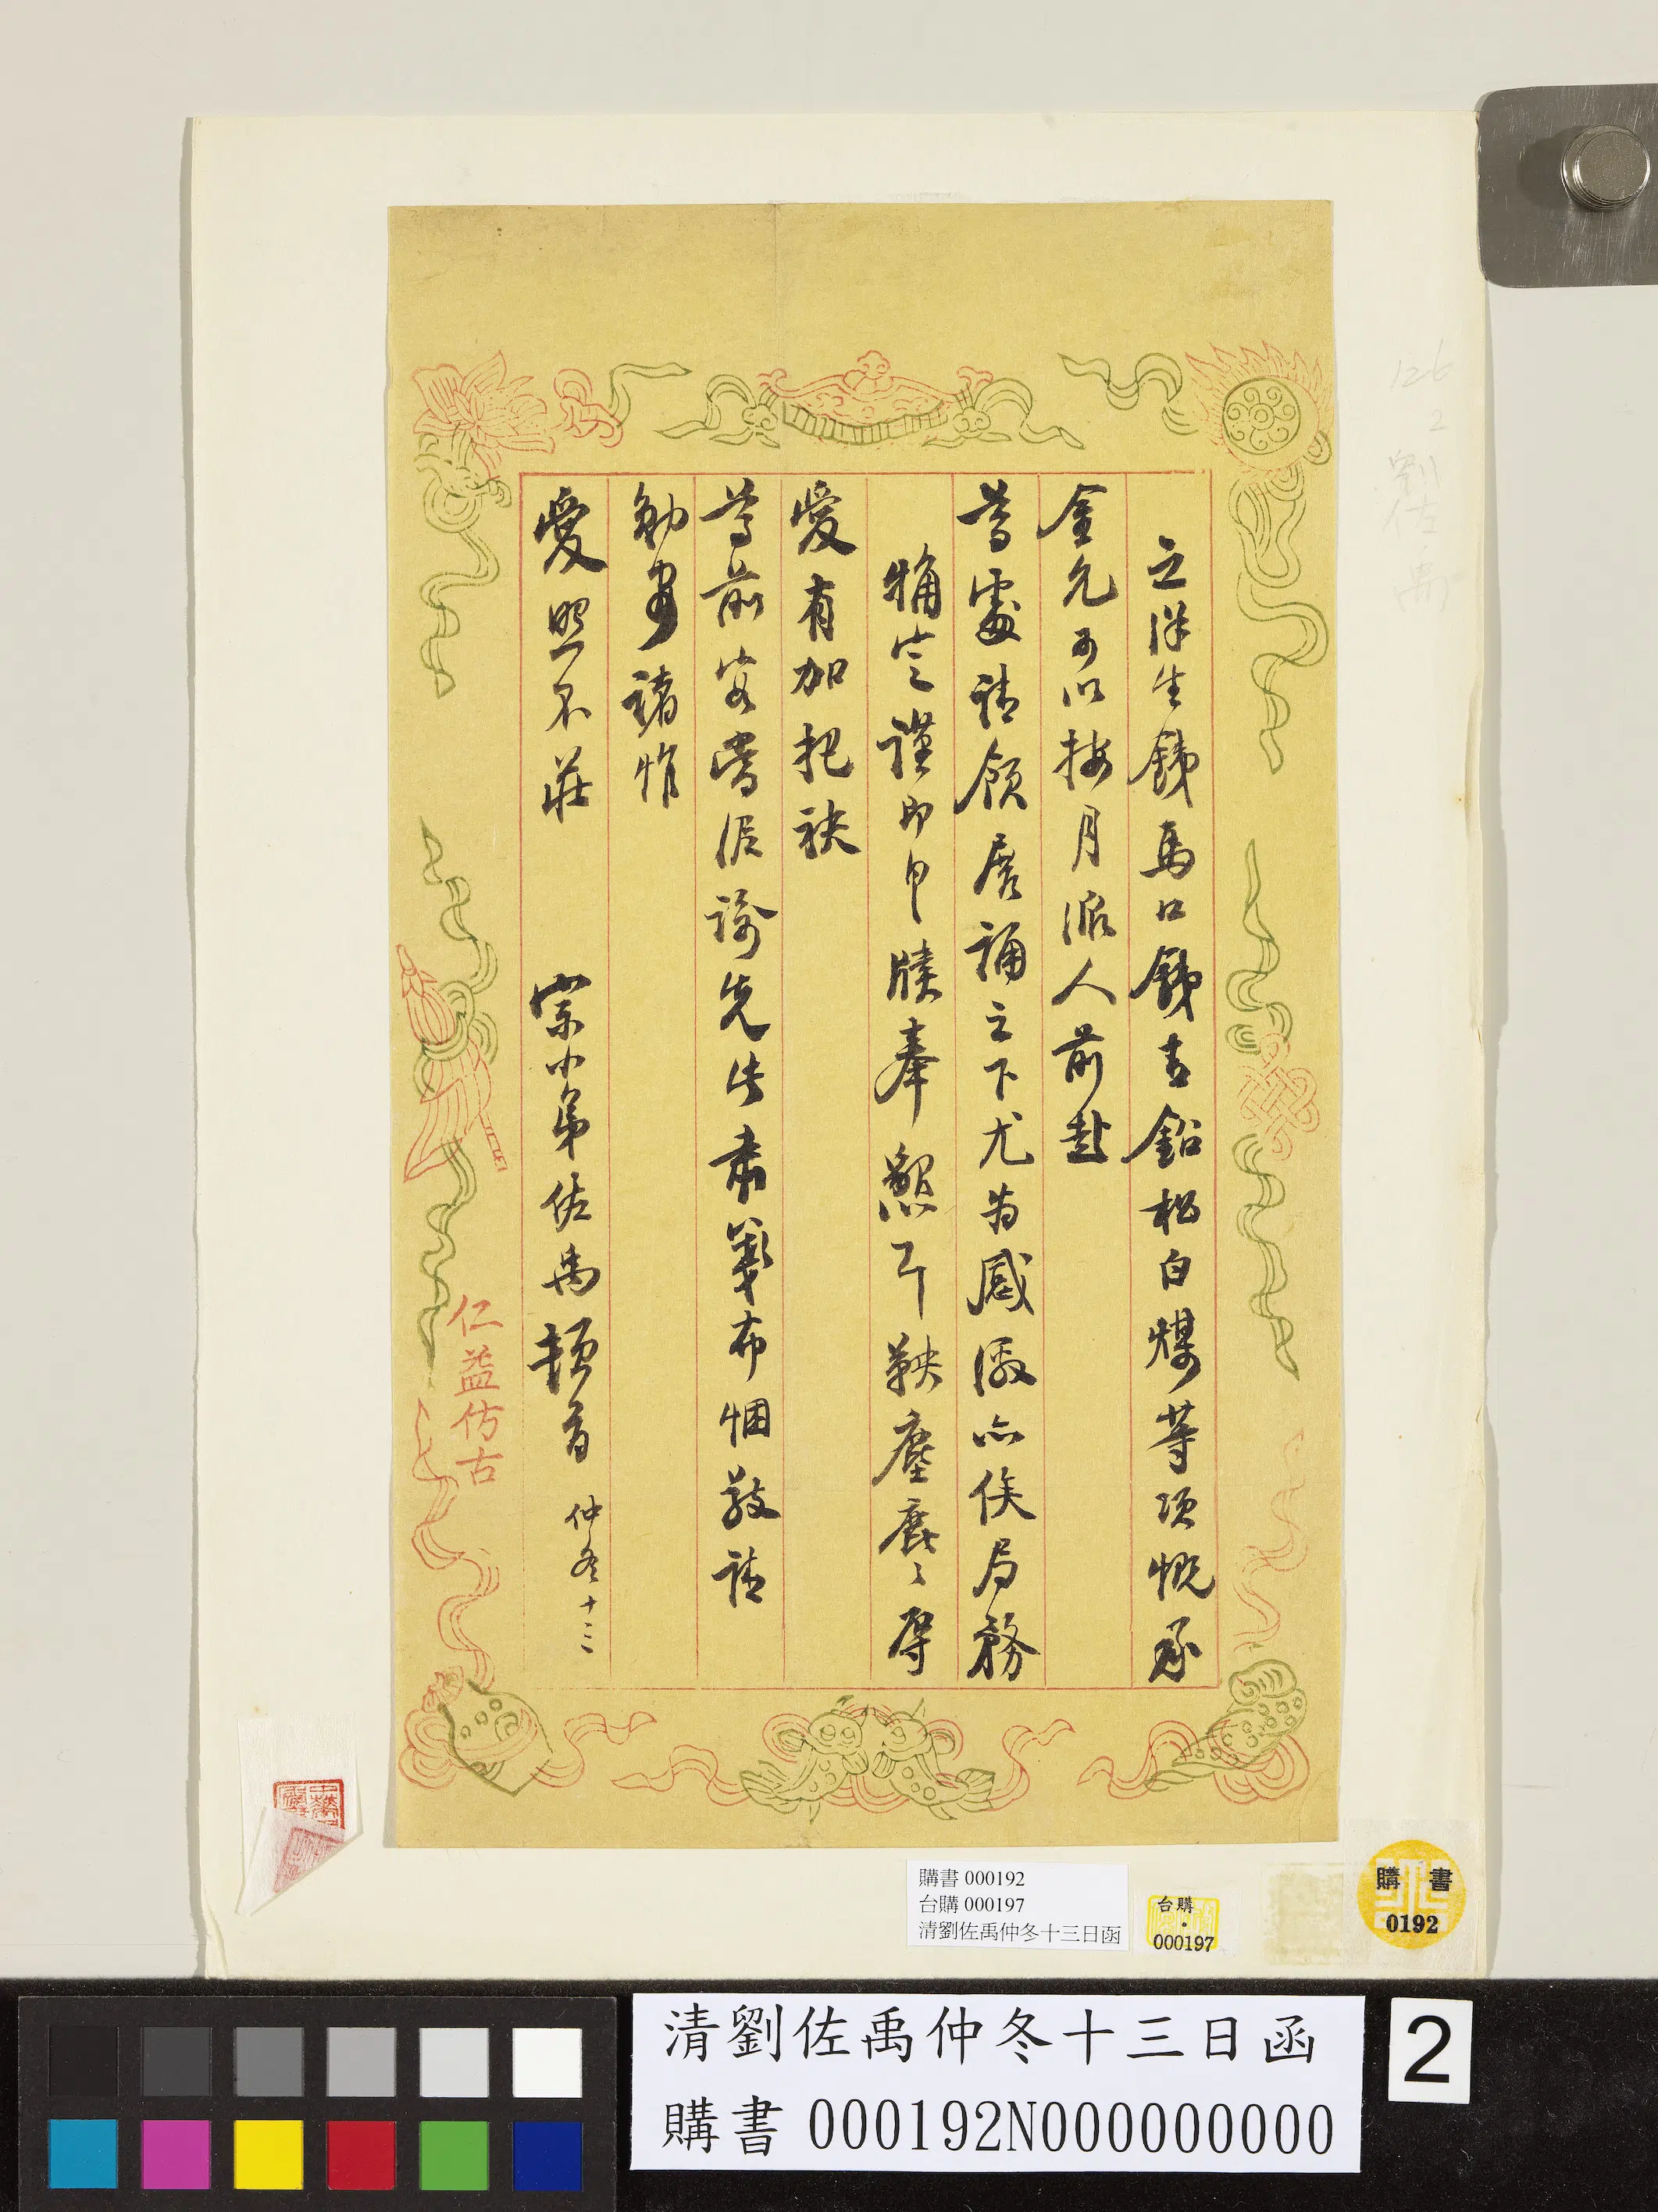 之洋生鉄馬口鉄青鉛松白煤等項慨承
金允可以按月派人前赴
尊處請領居誦之下尤為感激亦俟局務
稍定謹即申牘奉懇耳鞅塵鹿〻辱
愛有加把袂
尊前容當俟諸先此肅箋布悃敬請
勛安諸惟
愛照不莊
宗小弟佐禹頓首 仲冬十三
仁益仿古
126
2
劉佐禹
購書 000192
台購 000197
清劉佐禹仲冬十三日函
台購
000197
購書
0192
清劉佐禹仲冬十三日函
購書 000192N000000000
2